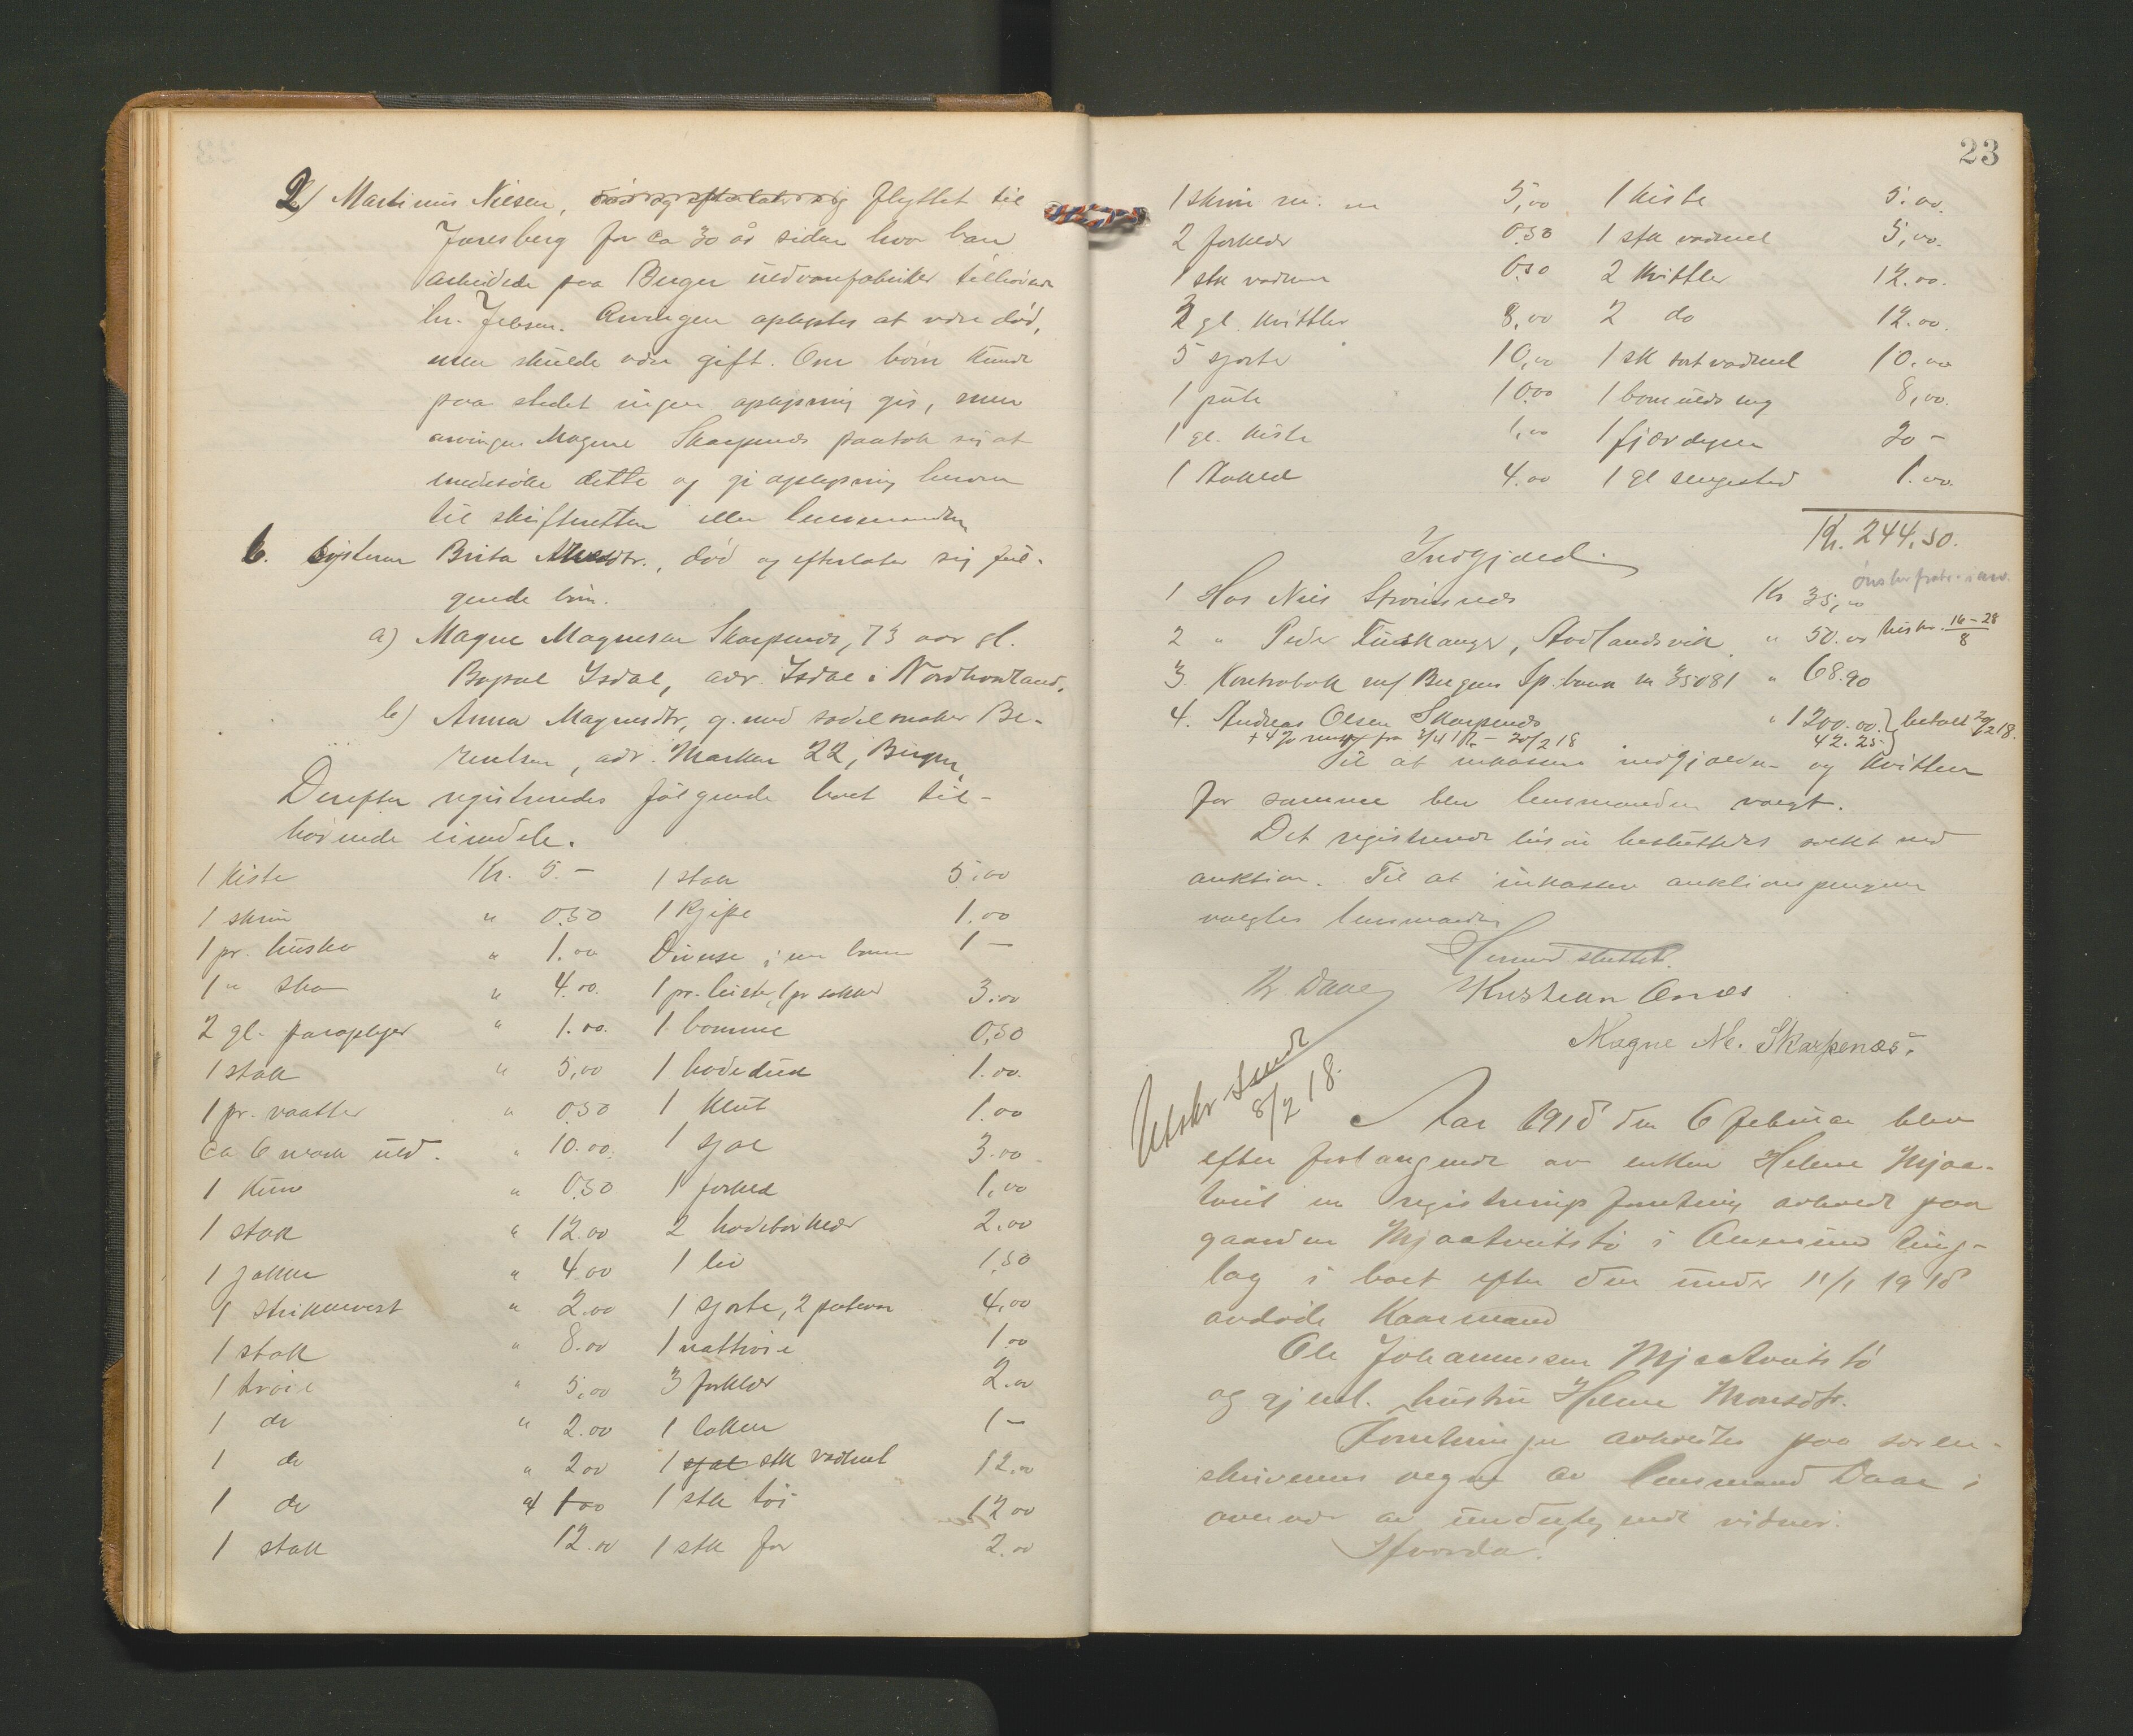 2) Martinus Nilsen, død og efterlater sig flyttet til
Jarlsberg for ca 30 år siden hvor han
arbeidede paa Berger uldvarefabrikker tilhørende
hr. Jebsen. Arvingen oplystes at være død,
men skulde være gift. Om børn kunde
paa stedet ingen oplysning gis, men
arvingen Magne Skarpenes paatok sig at
undersøke dette og gi oplysning herom
til skifteretten eller lensmanden
6. Søsteren Brita Nilsdtr., død og efterlater sig føl-
gende børn.
a) Magne Magnesen Skarpenes, 73 aar gl.
Bopæl Isdal, adr. Isdal i Nordhordland.
b) Anna Magnesdtr, g. med sadelmaker Be-
rentsen, adr. Marken 22, Bergen,
Derefter registreredes følgende boet til-
hørende eiendele.
1 kiste Kr. 5.- 1 stak 5.00
1 skrin " 0.50 1 kjipe 1.00
1 pr. husker " 1.00 Diverse i en 1 -
1 " sko " 4.00. 1 pr. , 1 pr sokker 3.00
2 gl. paraplyer " 1.00. 1 bomme 0,50
1 stak " 5,00 1 hodeduk 1.00.
1 pr. vaatter " 0.50 1 klut 1.00
Ca 6 mark uld. " 10.00. 1 sjal 3.00
1 " 0.50 1 forkle 1,00
1 stak " 12.00 2 2.00
1 jakke " 4.00 1 liv 1,50
1 strikkevest " 2.00 1 sjorte, 2 4,00
1 stak " 8.00 1 nattrøie 1.00
1 trøie " 5,00 3 forklær 2.00
1 do " 2.00 1 laken 1 -
1 do " 2.00 1 sjal stk vadmel 12.00
1 do " 1.00 1 stk tøi 12.00
1 stak 12.00 1 stk for 2.00
23
1 skrin m. m 5,00 1 kiste 5.00.
2 forklær 0.50 1 stk vadmel 5,00.
1 stk vadmel 0.50 2 kvittler 12.00.
2 gl. kvittler 8,00 2 do 12.00.
5 sjorte 10,00 1 stk sort vadmel 10.00
1 pute 10.00 1 bomulds 8,00.
1 gl. kiste 1,00 1 fjærdyne 20 -
1 4.00 1 gl sengested 1.00.
Kr. 244.50.
Indgjæld.
1 Hos Nils Strømsnes Kr 35,00
2 " Peder Fuskanger, Austlandsvik " 50.00 16-28/8
3. Kontrabok m/ Bergens Sp. bank nr 35081 " 68.90
4. Andreas Olsen Skarpenes " 1200.00 } betalt 20/2 18.
+ 4% renter fra 3/4 17 - 20/2 18 42.25 }
Til at inkassere indgjælden og kvittere
for samme blev lensmanden valgt.
Det registrerede løsøre besluttedes solgt ved
auktion. Til at inkassere auktionspengene
valgtes lensmanden
Hermed sluttet.
Kr. Daae Kristian Onæs
Magne M. Skarpenæs.
Utskr. sendt
8/2 18.
Aar 1918 den 6 februar blev
efter forlangende av enken Helene Mjaa-
tveit en registreringsforretning avholdt paa
gaarden Mjaatveitstø i Alversund ting-
lag i boet efter den under 11/1 1918
avdøde Kaarmand
Ole Johannessen Mjaatveitstø
og gjenl. hustru Helene Monsdtr.
Forretningen avholdtes paa soren-
skriverens vegne av lensmand Daae i
overvær av undertegnede vidner.
Hvorda: